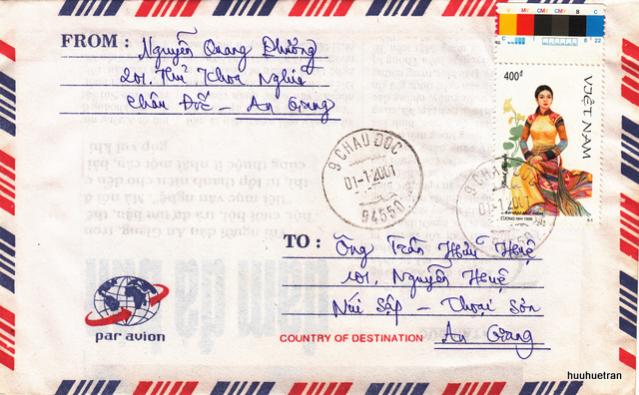 FROM :
Nguyễn Quang Phường
201. Thủ Khoa Nghĩa
Châu Đốc - An Giang
400đ
VIỆT NAM
9 CHAU DOC
01-1-2001
94550
9 CHAU DOC
01-1-2001
TO :
Ông Trần Hữu Huệ
101. Nguyễn Huệ
Núi Sập - Thoại Sơn
COUNTRY OF DESTINATION
An Giang
par avion
huuhuetran